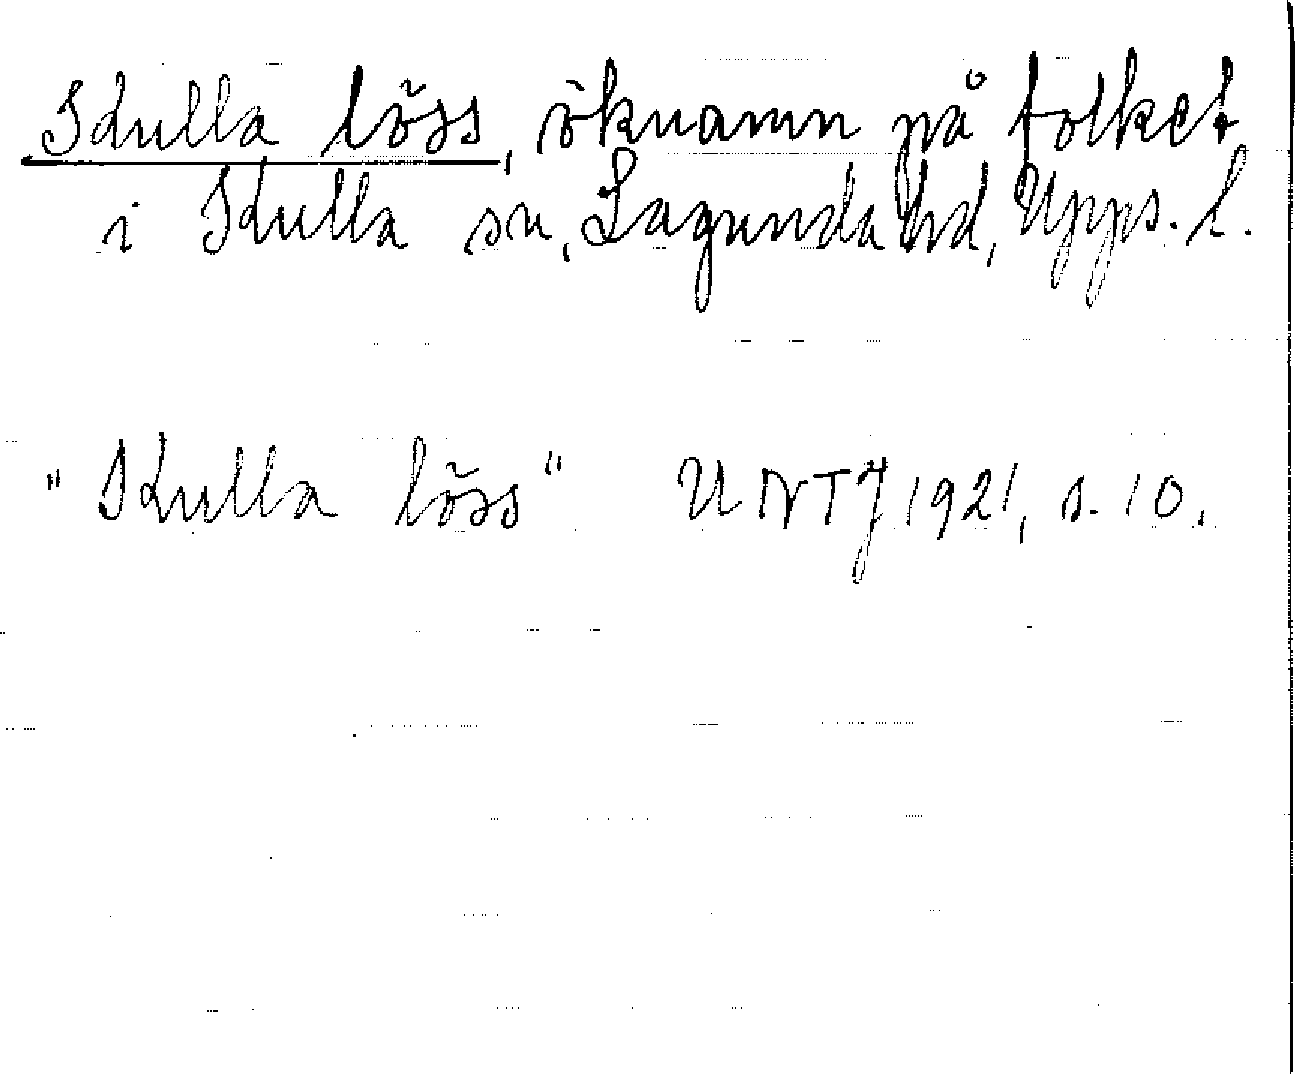 Kulla löss, öknamn på folket
i Kulla sn, Lagunda hd, Upps. l.
"Kulla löss" UNTJ 1921, s. 10.